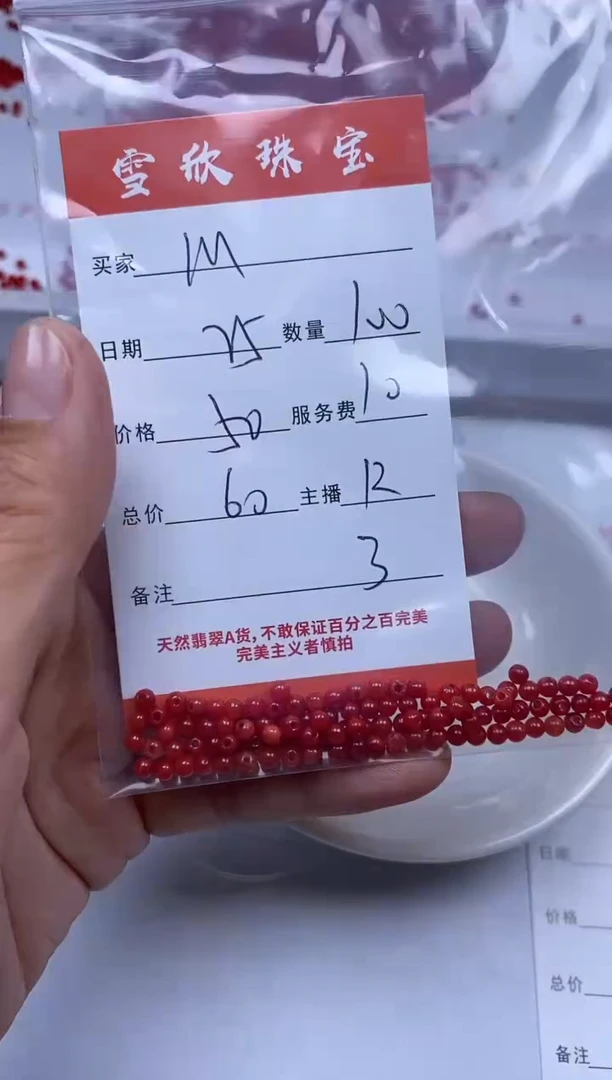 雪欣珠宝
买家 M
日期 25 数量 100
价格 50 服务费 10
总价 60 主播 12
备注 3
天然翡翠A货,不敢保证百分之百完美
完美主义者慎拍
日期
价格
总价
备注